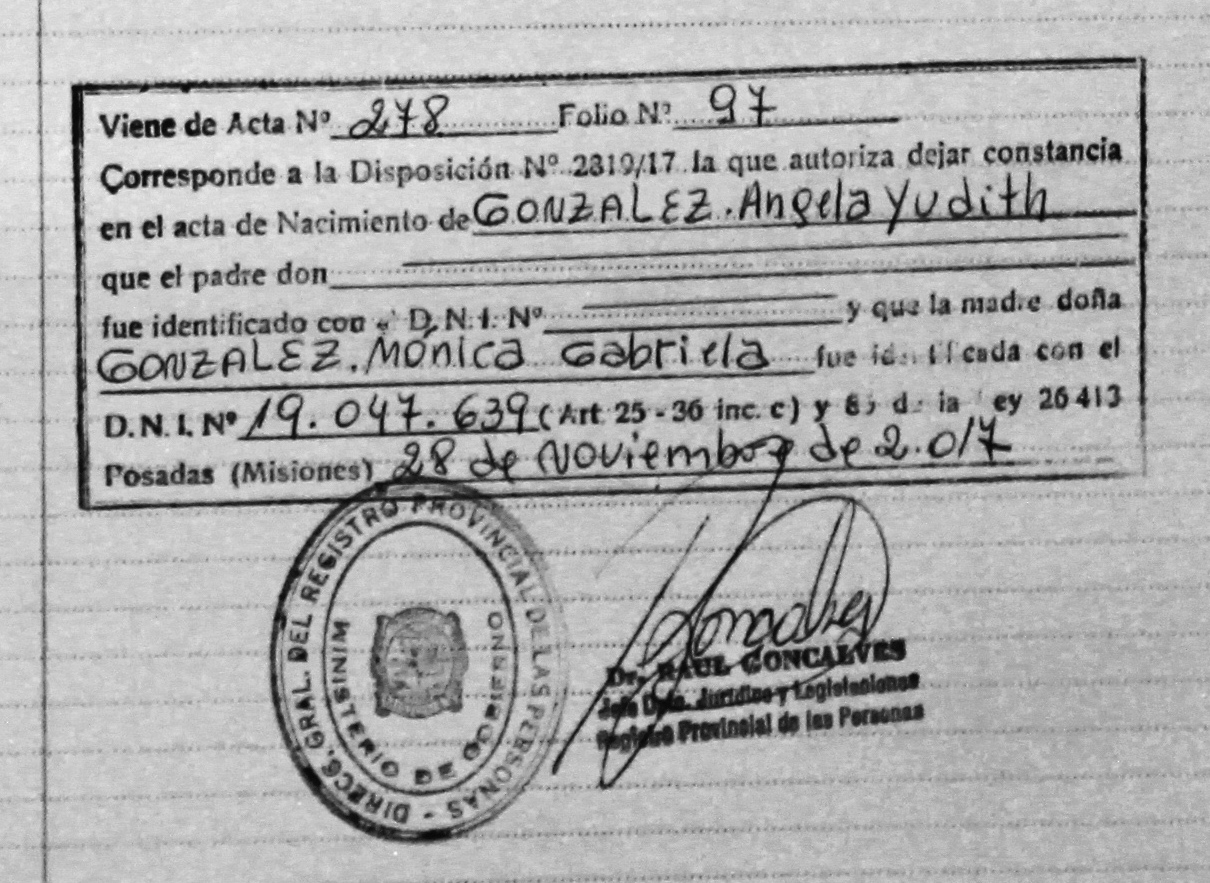 Viene de Acta Nº 278 Folio Nº 97
Corresponde a la Disposición Nº 2819/17 la que autoriza dejar constancia
en el acta de Nacimiento de GONZALEZ. Angela Yudith
que el padre don
fue identificado con D.N.I. Nº y que la madre doña
GONZALEZ. Mónica Gabriela fue identificada con el
D.N.I. Nº 19.047.639 (Art. 25 - 36 inc. c) y de la Ley 26 413
Posadas (Misiones) 28 de Noviembre de 2.017
DIRECC. GRAL. DEL REGISTRO PROVINCIAL DE LAS PERSONAS -
MINISTERIO DE GOBIERNO
Dr. RAUL GONCALVES
Jefe Dpto. Jurídico y Legislaciones
Registro Provincial de las Personas